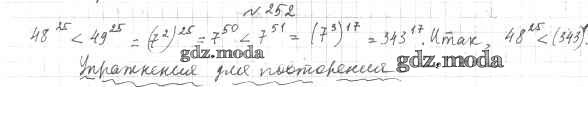 № 252
48²⁵ < 49²⁵ = (7²)²⁵ = 7⁵⁰ < 7⁵¹ = (7³)¹⁷ = 343¹⁷. Итак, 48²⁵ < (343)
gdz.moda
gdz.moda
Упражнения для повторения